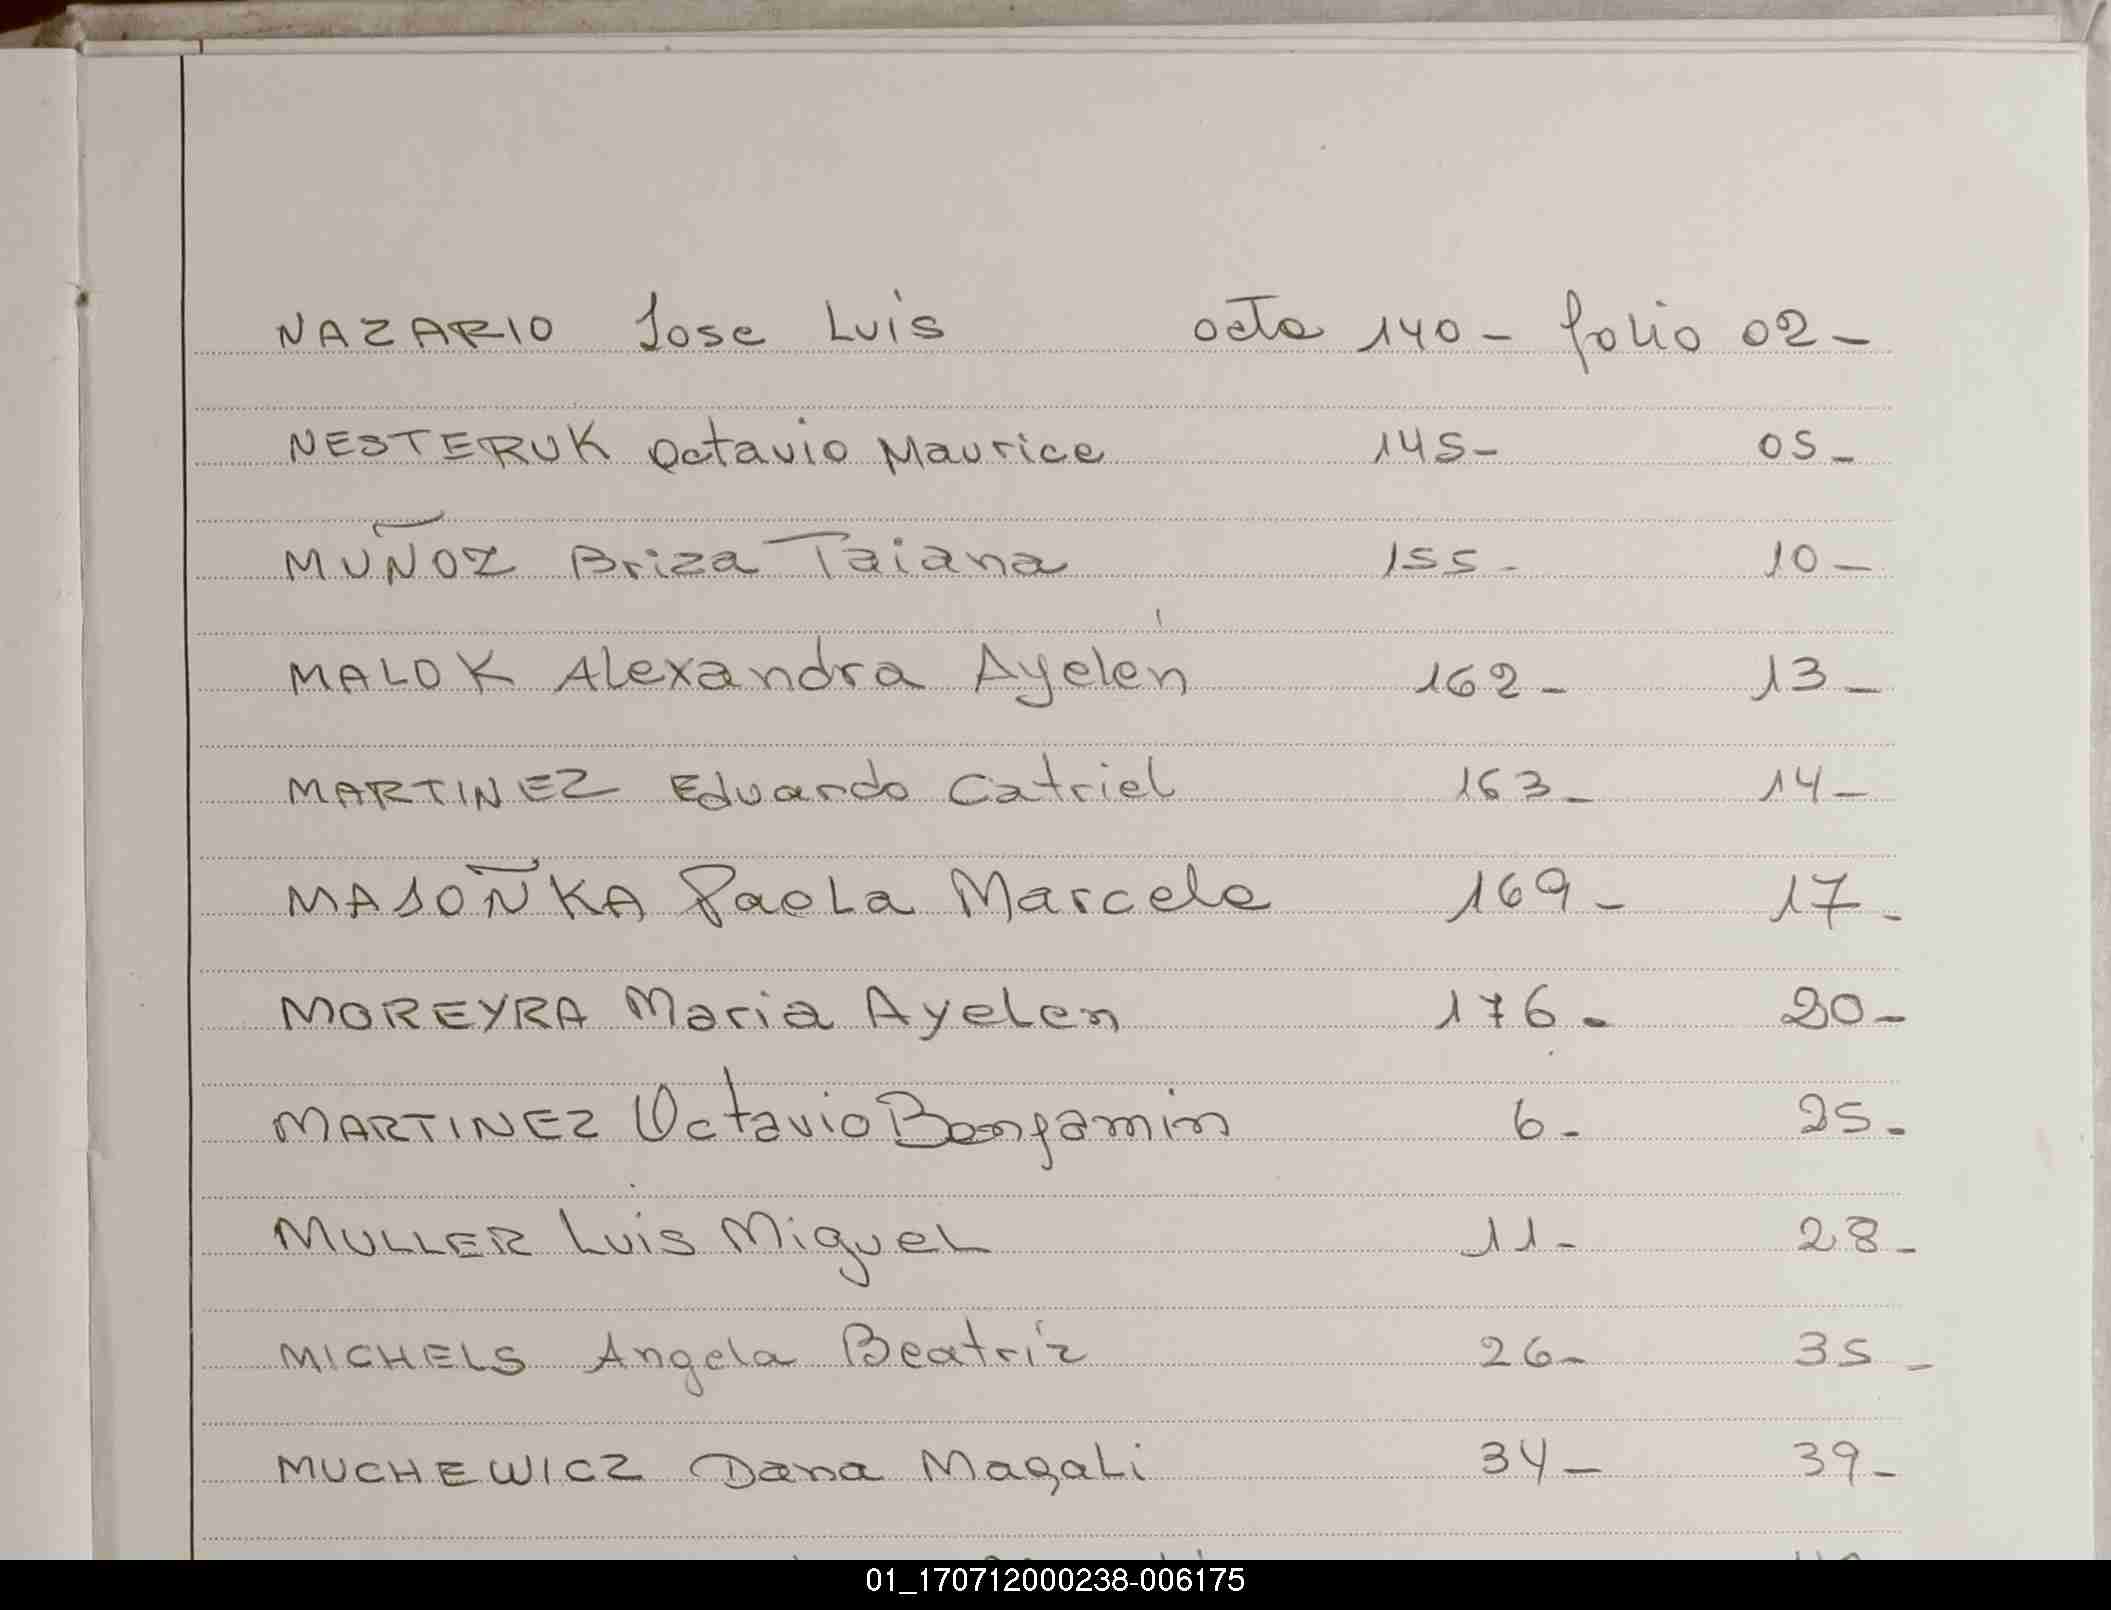 NAZARIO Jose Luis acta 140 - folio 02 -
NESTERUK Octavio Maurice 145 - 05 -
MUÑOZ Briza Taiana 155 - 10 -
MALOK Alexandra Ayelén 162 - 13 -
MARTINEZ Eduardo Catriel 163 - 14 -
MASOÑKA Paola Marcela 169 - 17 -
MOREYRA Maria Ayelen 176 - 20 -
MARTINEZ Octavio Benjamin 6 - 25 -
MULLER Luis Miguel 11 - 28 -
MICHELS Angela Beatriz 26 - 35 -
MUCHEWICZ Dana Magali 34 - 39 -
01_170712000238-006175